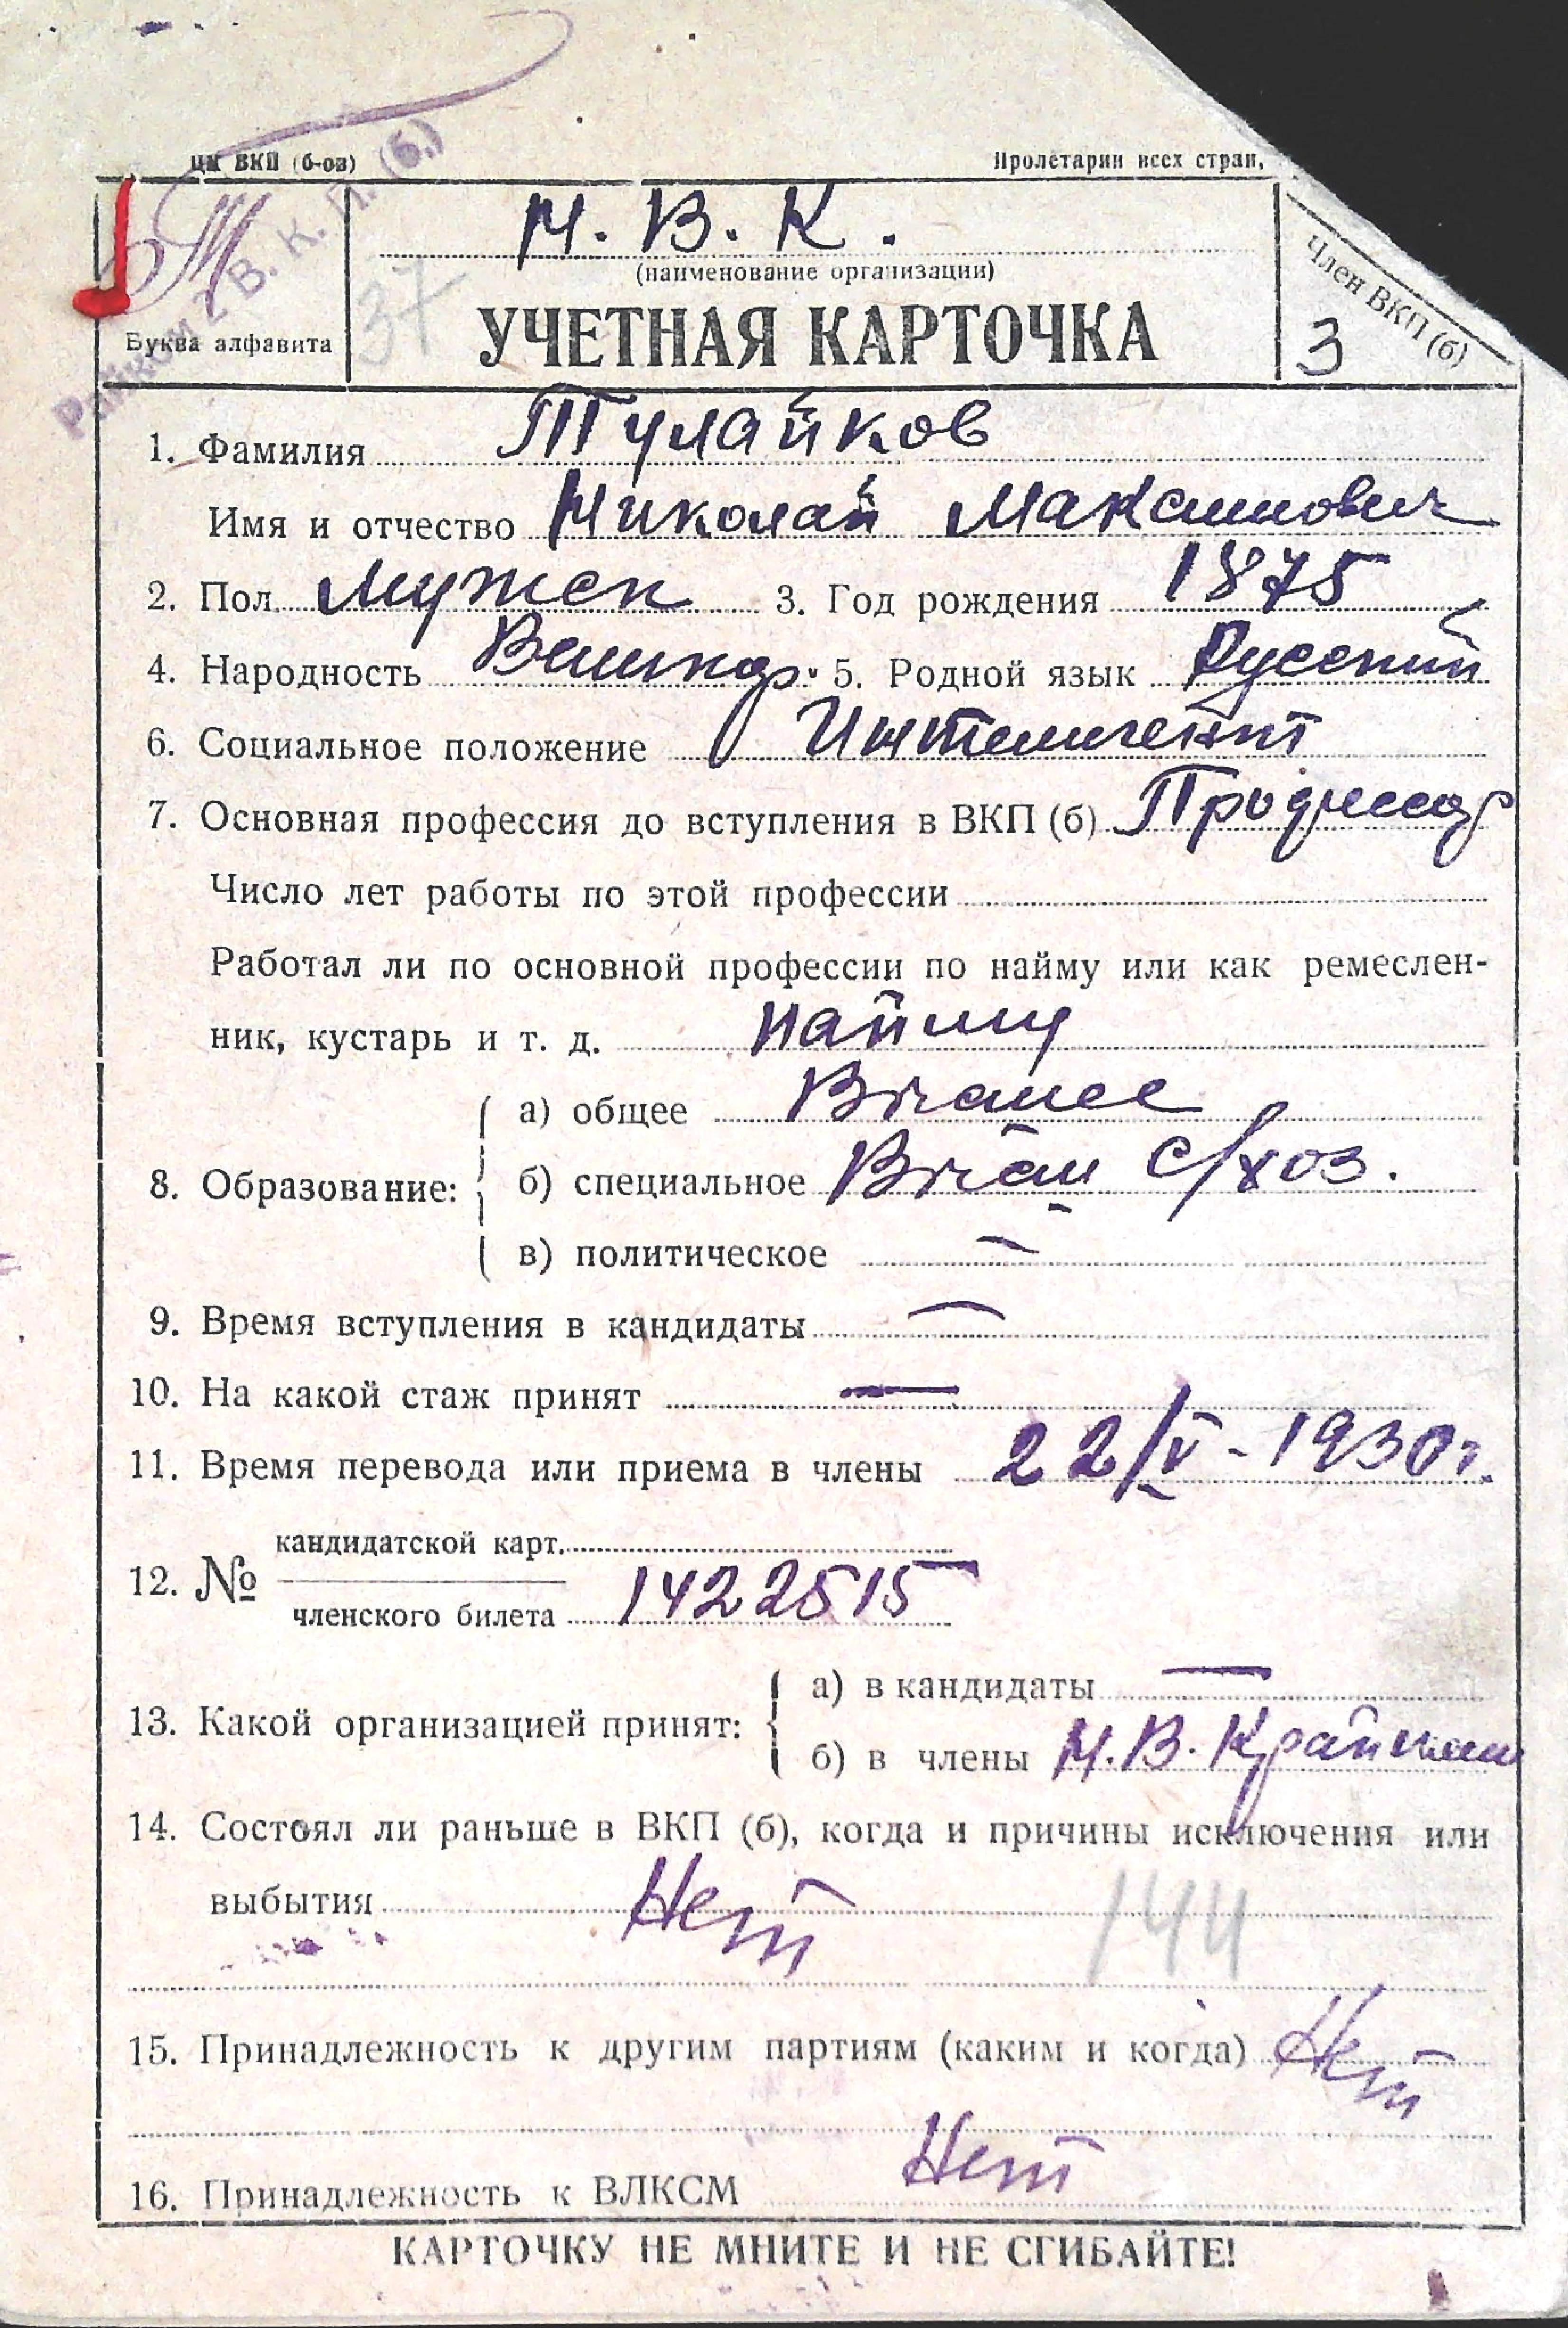 ЦК ВКП (б-ов)
Пролетарии всех стран,
Т
Н. В. К.
(наименование организации)
Буква алфавита
37
УЧЕТНАЯ КАРТОЧКА
Член ВКП (б)
3
Райком 2 В. К. П. (б.)
1. Фамилия Тулайков
Имя и отчество Николай Максимович
2. Пол Мужск 3. Год рождения 1875
4. Народность Великор. 5. Родной язык Русский
6. Социальное положение Интелигент
7. Основная профессия до вступления в ВКП (б) Професор
Число лет работы по этой профессии
Работал ли по основной профессии по найму или как ремеслен-
ник, кустарь и т. д. найму
а) общее Высшее
8. Образование: б) специальное Высш с/хоз.
в) политическое —
9. Время вступления в кандидаты —
10. На какой стаж принят —
11. Время перевода или приема в члены 22/V - 1930 г.
кандидатской карт.
12. №
членского билета 1422515
а) в кандидаты —
13. Какой организацией принят:
б) в члены Н. В. Крайком
14. Состоял ли раньше в ВКП (б), когда и причины исключения или
выбытия Нет
144
15. Принадлежность к другим партиям (каким и когда) Нет
16. Принадлежность к ВЛКСМ Нет
КАРТОЧКУ НЕ МНИТЕ И НЕ СГИБАЙТЕ!